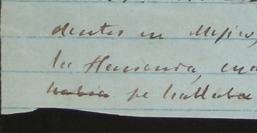 dentes en Mejico,
la Hacienda, cua
habia se hallaba